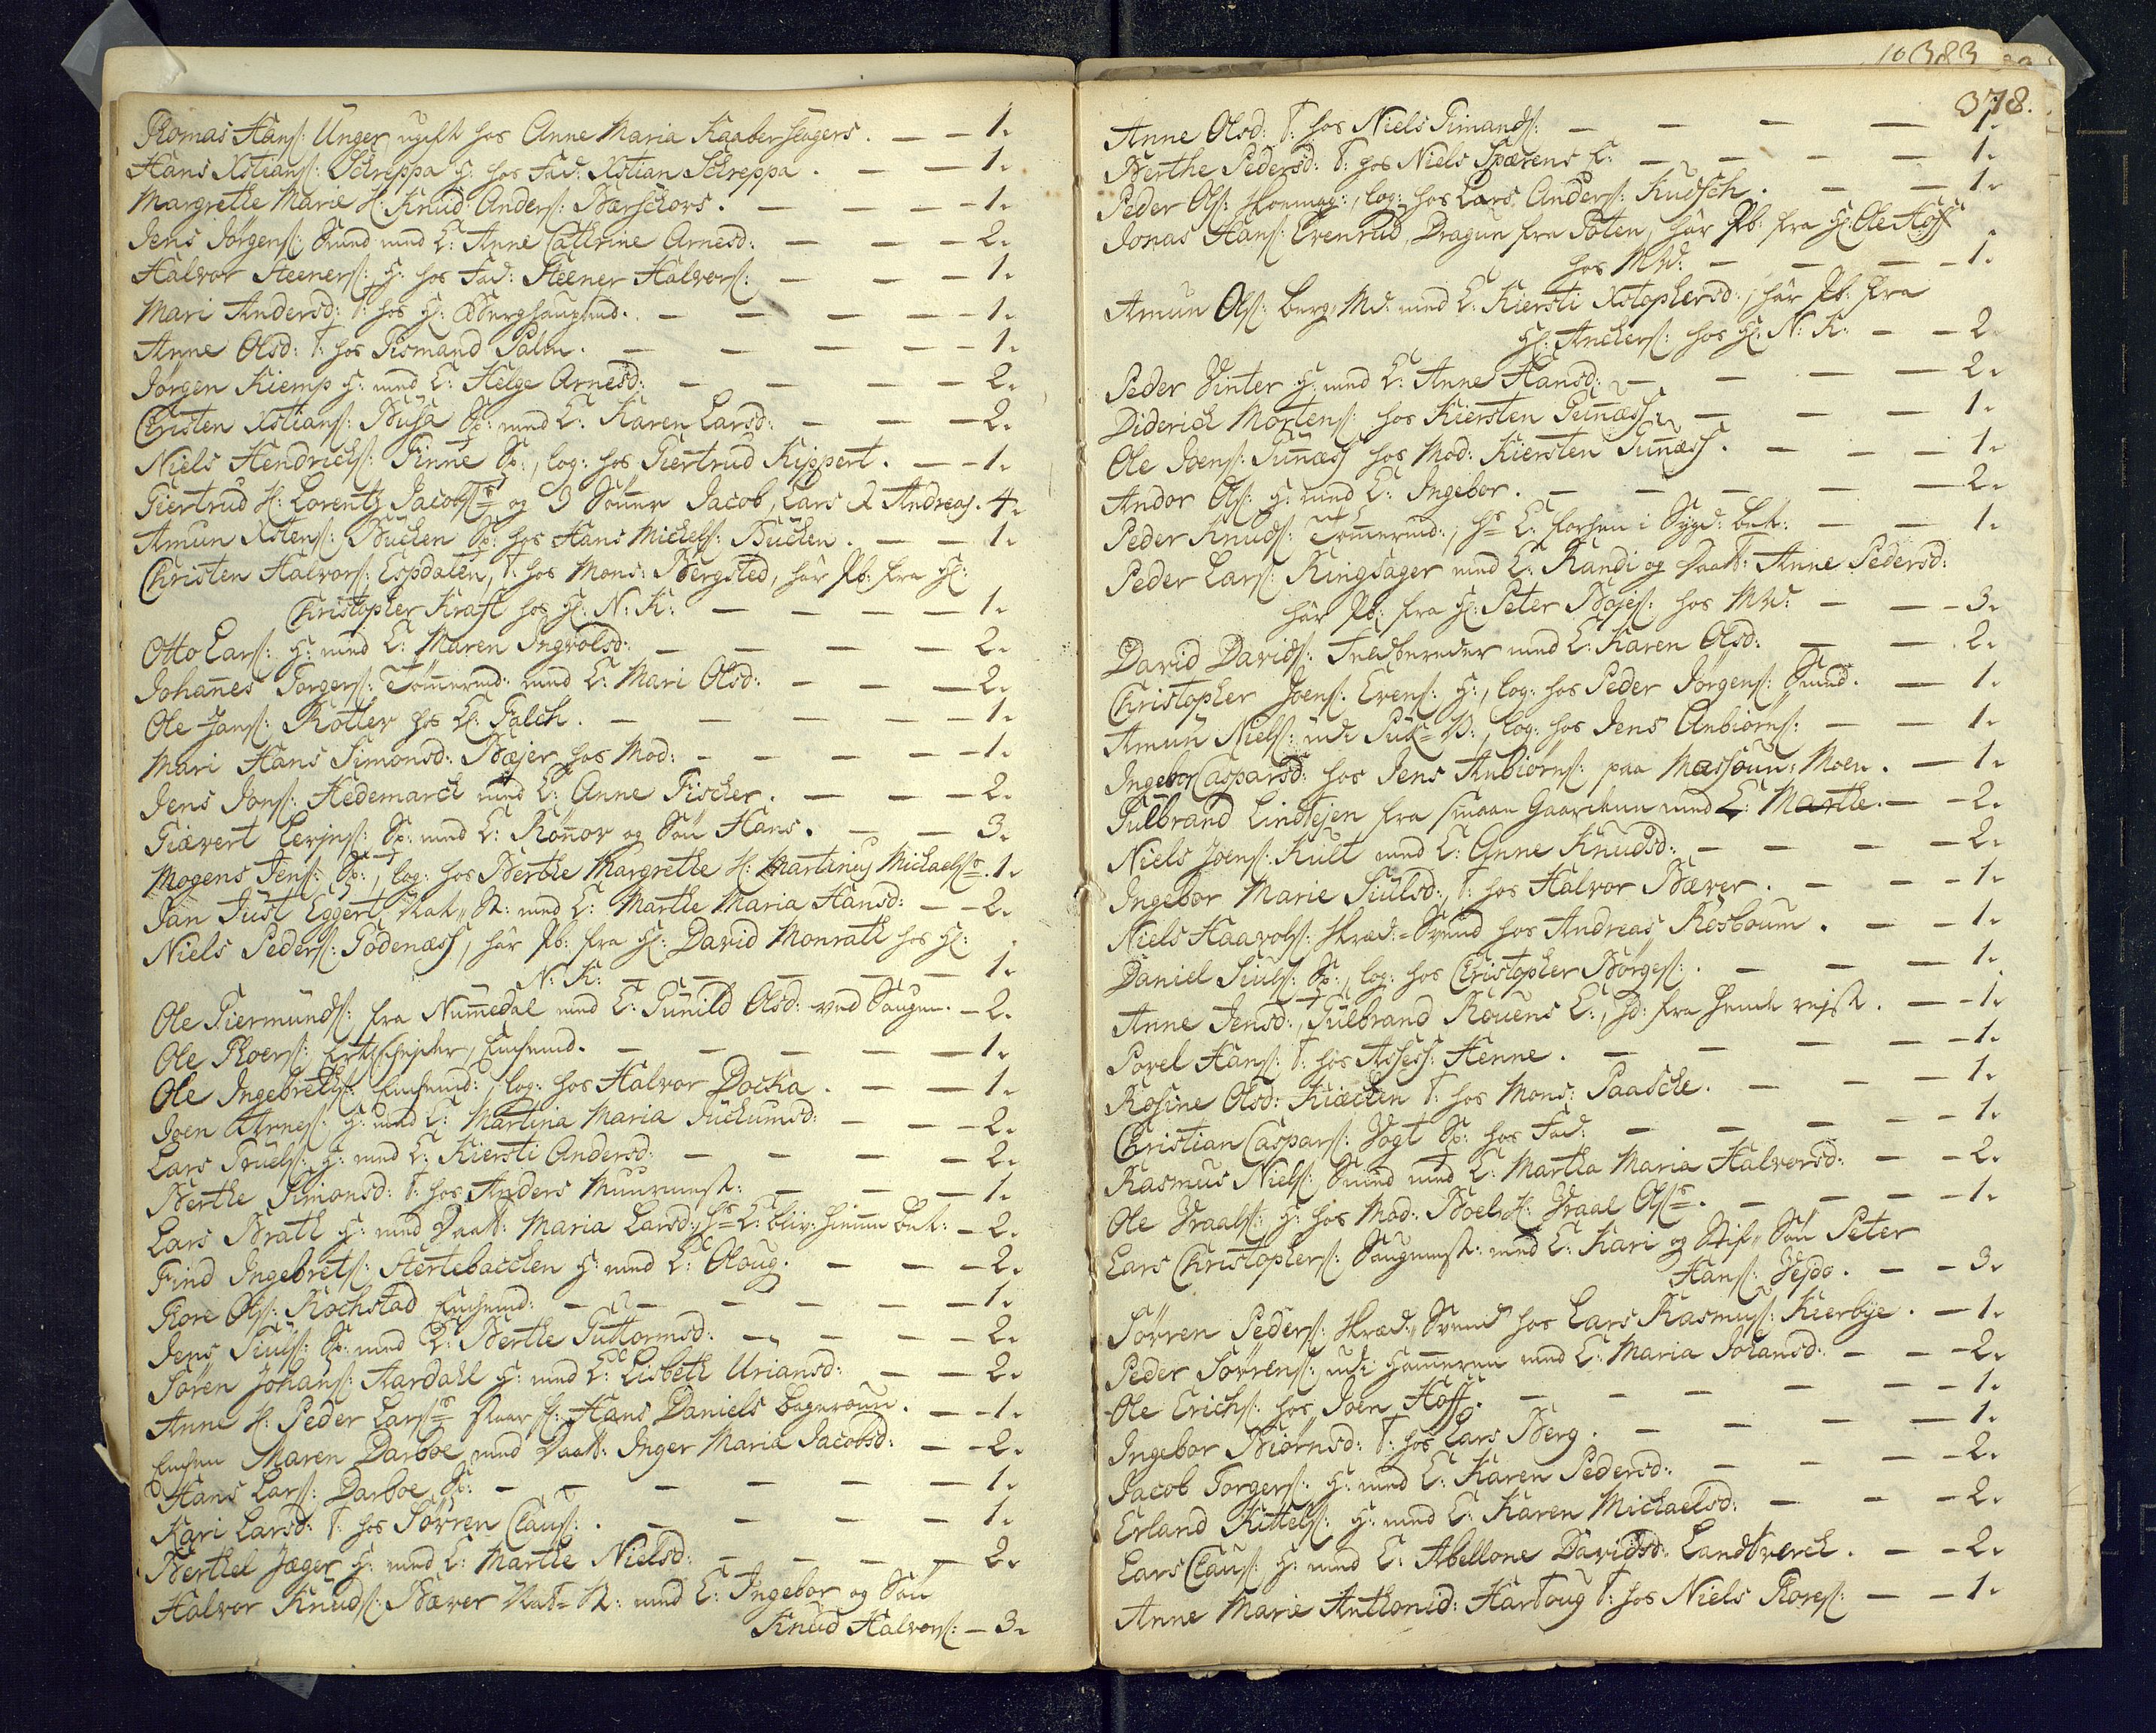 Thomas Hans: Unger ugift hos Anne Maria Kaaberslagers. — — 1.
Hans Xstians: Schreppa H: hos Fad: Xstian Schreppa. — — 1.
Margrethe Marie H: Knud Anders: Bærschors. — — — 1.
Jens Jørgens: Smed med E: Anne Cathrine Arnesd: — — — 2.
Halvor Steeners: H: hos Fad: Steener Halvors: — — — 1.
Mari Andersd: T: hos H: Berghauptmd. — — — — 1.
Anne Olsd: T: hos Tismand Palm. — — — — 1.
Jørgen Kiemp H: med E: Helge Arnesd: — — — — 2.
Christen Xstians: Busa Sp: med E: Karen Larsd: — — — 2.
Niels Hendrichs: Finne Sp:, log: hos Giertrud Kippert. — — 1.
Giertrud H: Lorentz Jacobs: og 3 Sønner Jacob, Lars & Andreas. 4.
Amun Xstens: Buchen Sp: hos Hans Michels: Buchen. — — 1.
Christen Halvors: Espdalen, T: hos Mons: Bergsted, har Pb: fra H:
Christopher Kraft hos H: N: K: — — — — 1.
Otto Lars: H: med E: Maren Ingvolsd: — — — — 2.
Johannes Torgers: Tømermd: med E: Mari Olsd: — — — 2.
Ole Jans: Rotler hos H: Falch. — — — — 1.
Mari Hans Simonsd: Bæjer hos Mod: — — — — 1.
Jens Jons: Hedemarch med E: Anne Fischer. — — — 2.
Giævert Eerjns: Sp: med E: Rønnov og Søn Hans. — — 3.
Mogens Jens: Sp:, log: hos Berthe Margrethe H: Martinus Michaels: 1.
Jan Just Eggert, Nat. St: med E: Marthe Maria Hansd: — — 2.
Niels Peders: Godenæss, har Pb: fra H: David Monrath hos H:
N: K: — — — — — 1.
Ole Giermunds: fra Nummedal med E: Gunild Olsd: ved Saugen. — 2.
Ole Thoers:, — — — — — 1.
Ole Ingebreths: log: hos Halvor Docka. — — 1.
Joen Arnes: H: med E: Martina Maria Juchumsd: — — — 2.
Lars Truels: H: med E: Kiersti Andersd: — — — — 2.
Berthe Simonsd: T: hos Anders Muurmest: — — — 1.
Lars Brath H: med Daatt: Maria Larsd: hs E: bliv: hiemme bet: — 2.
Find Ingebrets: Stertebacchen H: med E: Oloug. — — — 2.
Thore Ols: Rochstad — — — — — 1.
Jens Siuls: Sp: med E: Berthe Guttormsd: — — — 2.
Søren Johans: Aardahl H: med E: Lisbeth Uriansd: — — 2.
Anne H: Peder Lars: Hans Daniels — — 1.
Maren Darboe med Daatt: Inger Maria Jacobsd: — — 2.
Hans Lars: Darboe Sp: — — — — — 1.
Kari Larsd: T: hos Sørren Claus: — — — — 1.
Berthel Jæger H: med E: Marthe Nielsd: — — — — 2.
Halvor Knuds: Bæver Nat. St: med E: Ingebor og Søn
Knud Halvors: — 3.
10383
378.
Anne Olsd: T: hos Niels Timands: — — — — 1.
Berthe Pedersd: T: hos Niels Sparens E: — — — — 1.
Peder Ols: log: hos Lars Anders: Kudsch. — — — 1.
Jonas Hans: Evenrud, Dragun fra Toten, har Pb: fra H: Ole Hoff
hos MW: — — — — 1.
Amun Ols: Berg, Md: med E: Kiersti Xstophersd:, har Pb: fra
H: Anchers: hos H: N: K: — — 2.
Peder Vinter H: med E: Anne Hansd: — — — — 2.
Diderich Mortens: hos Kiersten Tunæss: — — — 1.
Ole Joens: Tunæss hos Mod: Kiersten Tunæss. — — — 1.
Andor Ols: H: med E: Ingebor. — — — — 2.
Peder Knuds: Tømermd:, hs E: forhen i Sygd: bet: — — 1.
Peder Lars: Ringsager med E: Randi og Daatt: Anne Pedersd:
har Pb: fra H: Peter Bojes: hos MW: — — 3.
David Davids: Feldbereder med E: Karen Olsd: — — 2.
Christopher Joens: Evens: H:, log: hos Peder Jørgens: Smed. — 1.
Amun Niels: ved log: hos Jens Anbiørns: — — 1.
Ingebor Caspersd: hos Jens Anbiørns: paa Massoun: Moen. — 1.
Gulbrand Lindtejen fra smaae Gaardene med E: Marthe. — — 2.
Niels Joens: Kult med E: Anne Knudsd: — — — 2.
Ingebor Marie Siulsd:, T: hos Halvor Bæver. — — — 1.
Niels Haavols: Skred: Svend hos Andreas Rosboum. — — 1.
Daniel Siuls: Sp:, log: hos Christopher Børges: — — — 1.
Anne Jensd:, Gulbrand Rouens E:, hd: fra hende rejst. — — 1.
Povel Hans: T: hos Assess: Henne. — — — — 1.
Rosine Olsd: Kiæchen T: hos Mons: Paasche. — — — 1.
Christian Caspars: Vogt Sp: hos Fad: — — — — 1.
Rasmus Niels: Smed med E: Martha Maria Halvorsd: — — 2.
Ole Vraals: H: hos Mod: Boel H: Vraal Ols: — — — 1.
Lars Christophers: Saugmest: med E: Kari og Stif. Søn Peter
Hans: Vesdo. — — 3.
Sørren Peders: Skred: Svend hos Lars Rasmus: Kierbye. — 1.
Peder Sørrens: ved Hammeren med E: Maria Johansd: — — 2.
Ole Erichs: hos Joen Hoff. — — — — 1.
Ingebor Biørnsd: T: hos Lars Berg. — — — — 1.
Jacob Torgers: H: med E: Karen Pedersd: — — — 2.
Erland Kittels: H: med E: Karen Michaelsd: — — — 2.
Lars Claus: H: med E: Abellone Davidsd: Landtverch. — — 2.
Anne Marie Anthonid: Hartoug T: hos Niels Thores: — — 1.